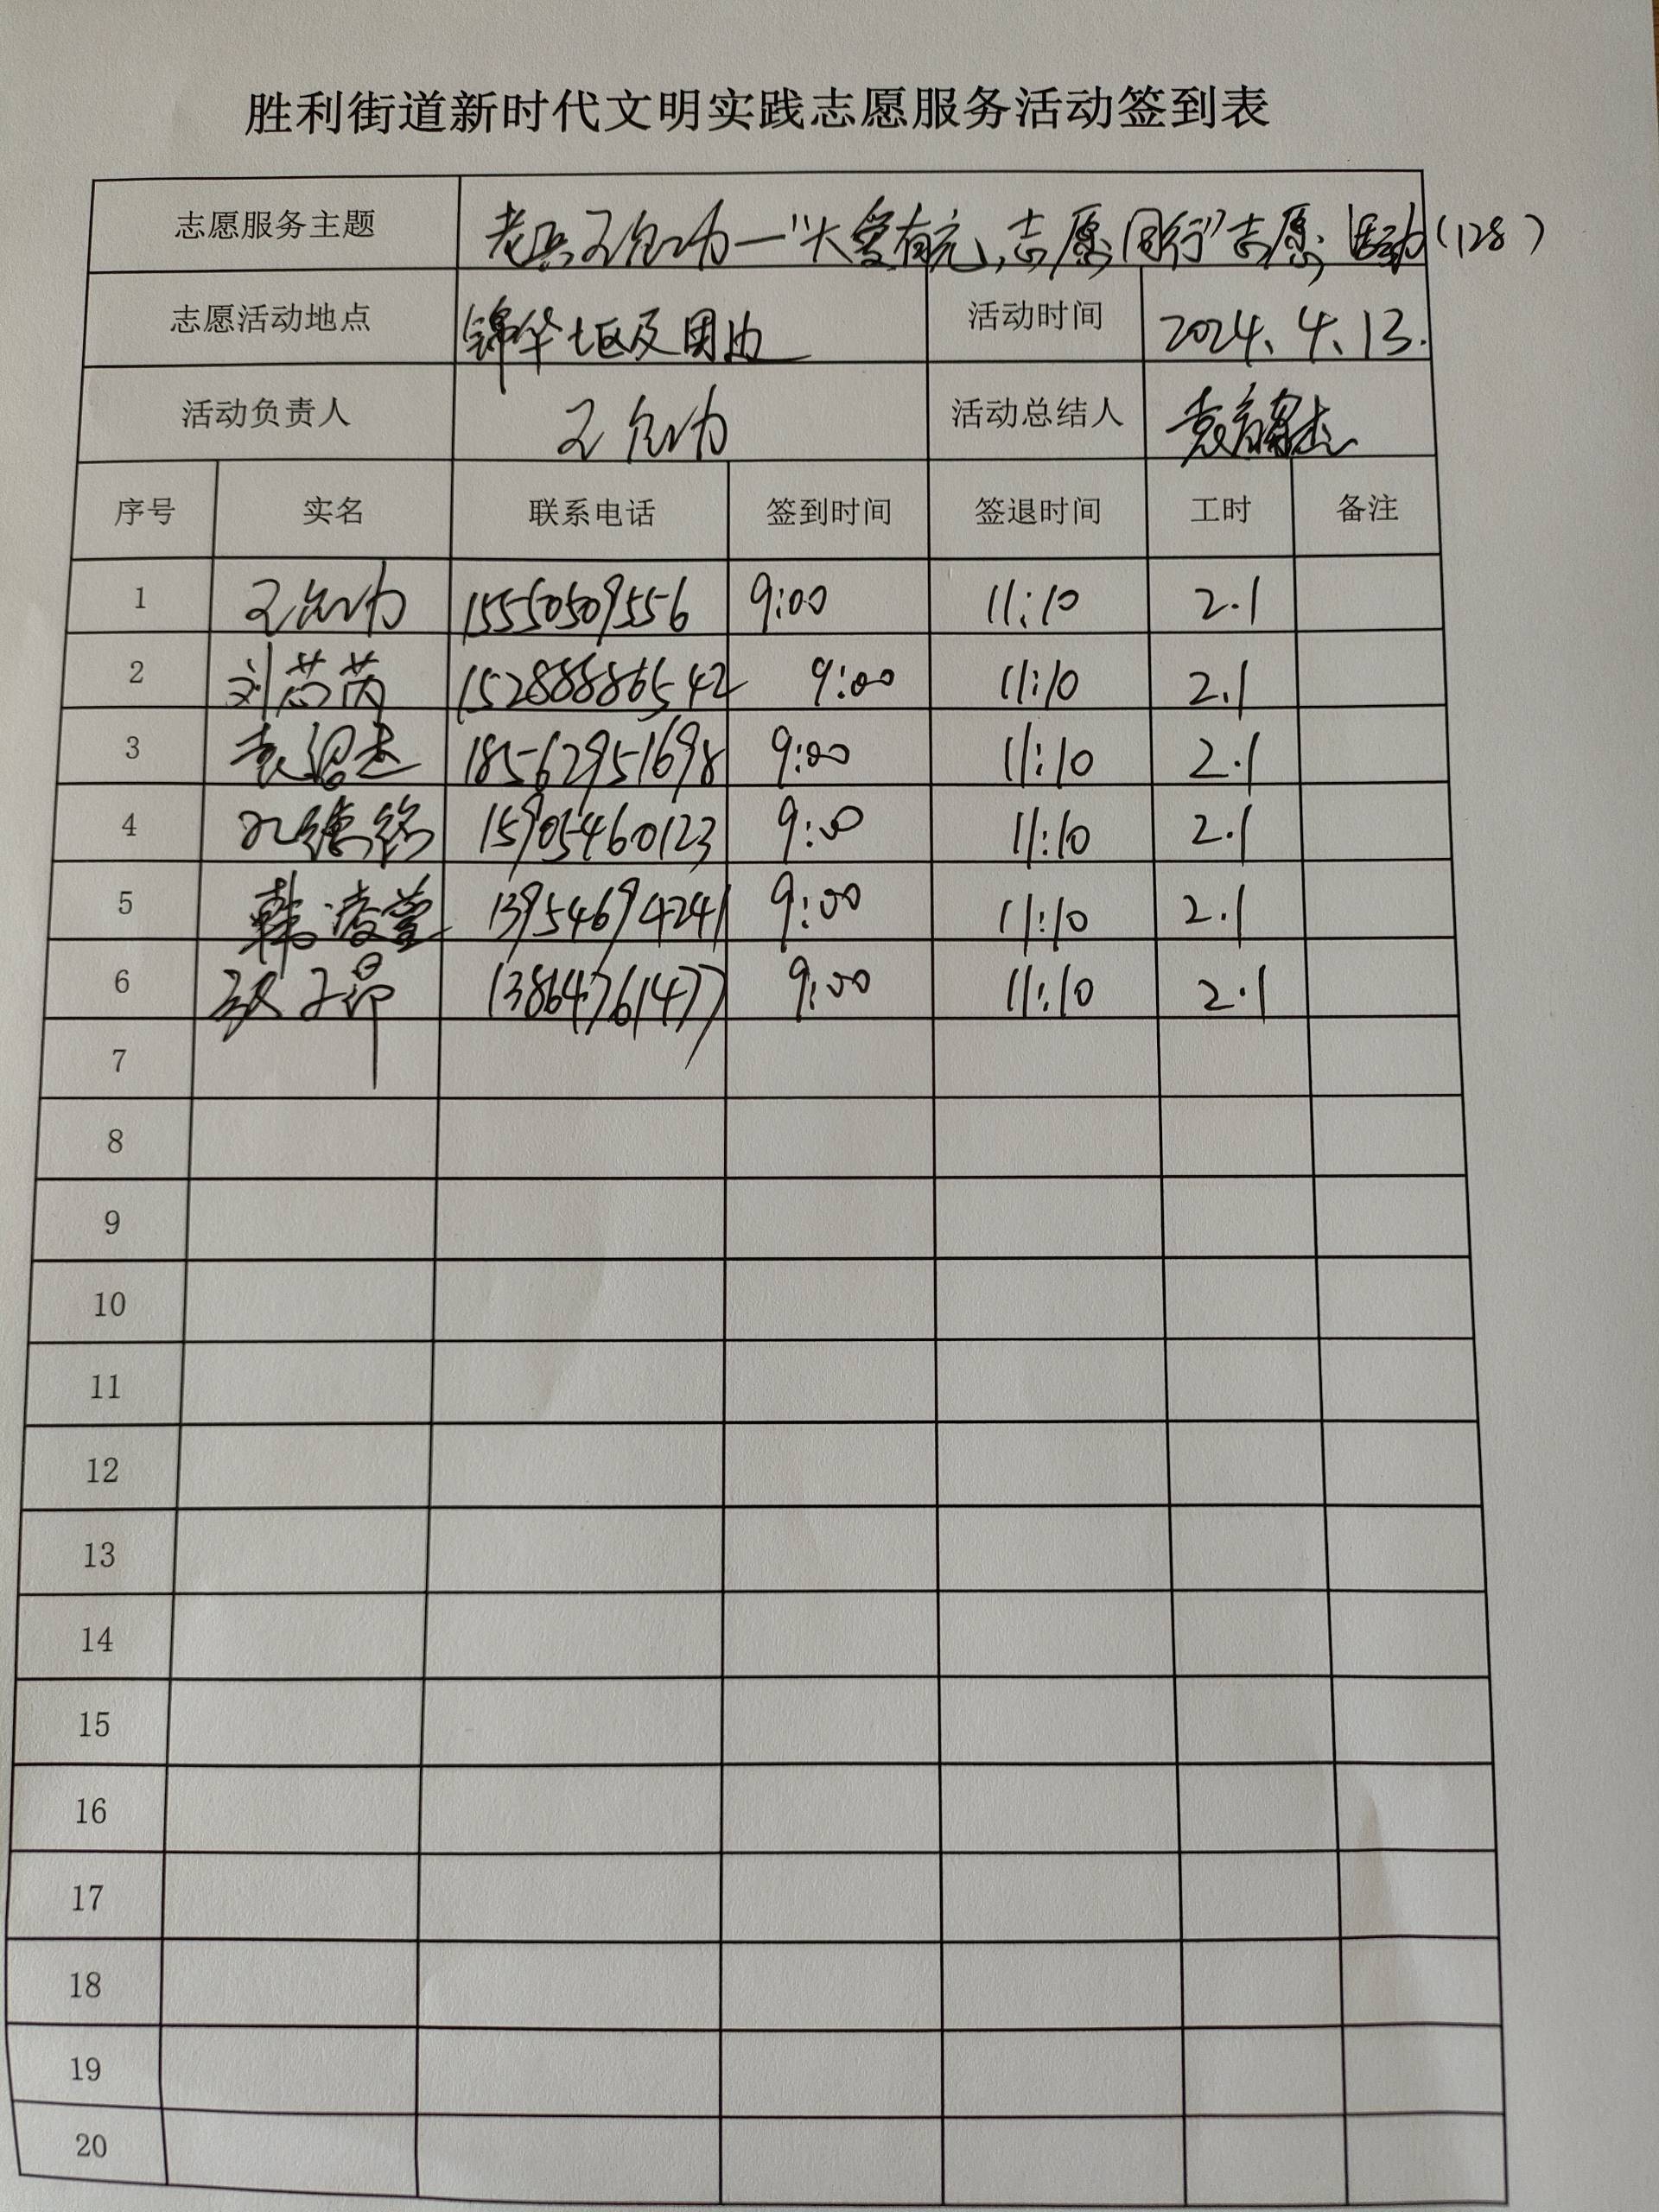 胜利街道新时代文明实践志愿服务活动签到表
志愿服务主题 老兵 一"大爱有 , 志愿同行"志愿活动(128)
志愿活动地点 锦华社区及周边 活动时间 2024、4、13.
活动负责人 活动总结人
序号 实名 联系电话 签到时间 签退时间 工时 备注
1 15550509556 9:00 11:10 2.1
2 刘芯芮 15288886542 9:00 11:10 2.1
3 18562951698 9:00 11:10 2.1
4 15905460123 9:00 11:10 2.1
5 韩凌萱 13954694241 9:00 11:10 2.1
6 张子昂 13864761477 9:00 11:10 2.1
7
8
9
10
11
12
13
14
15
16
17
18
19
20